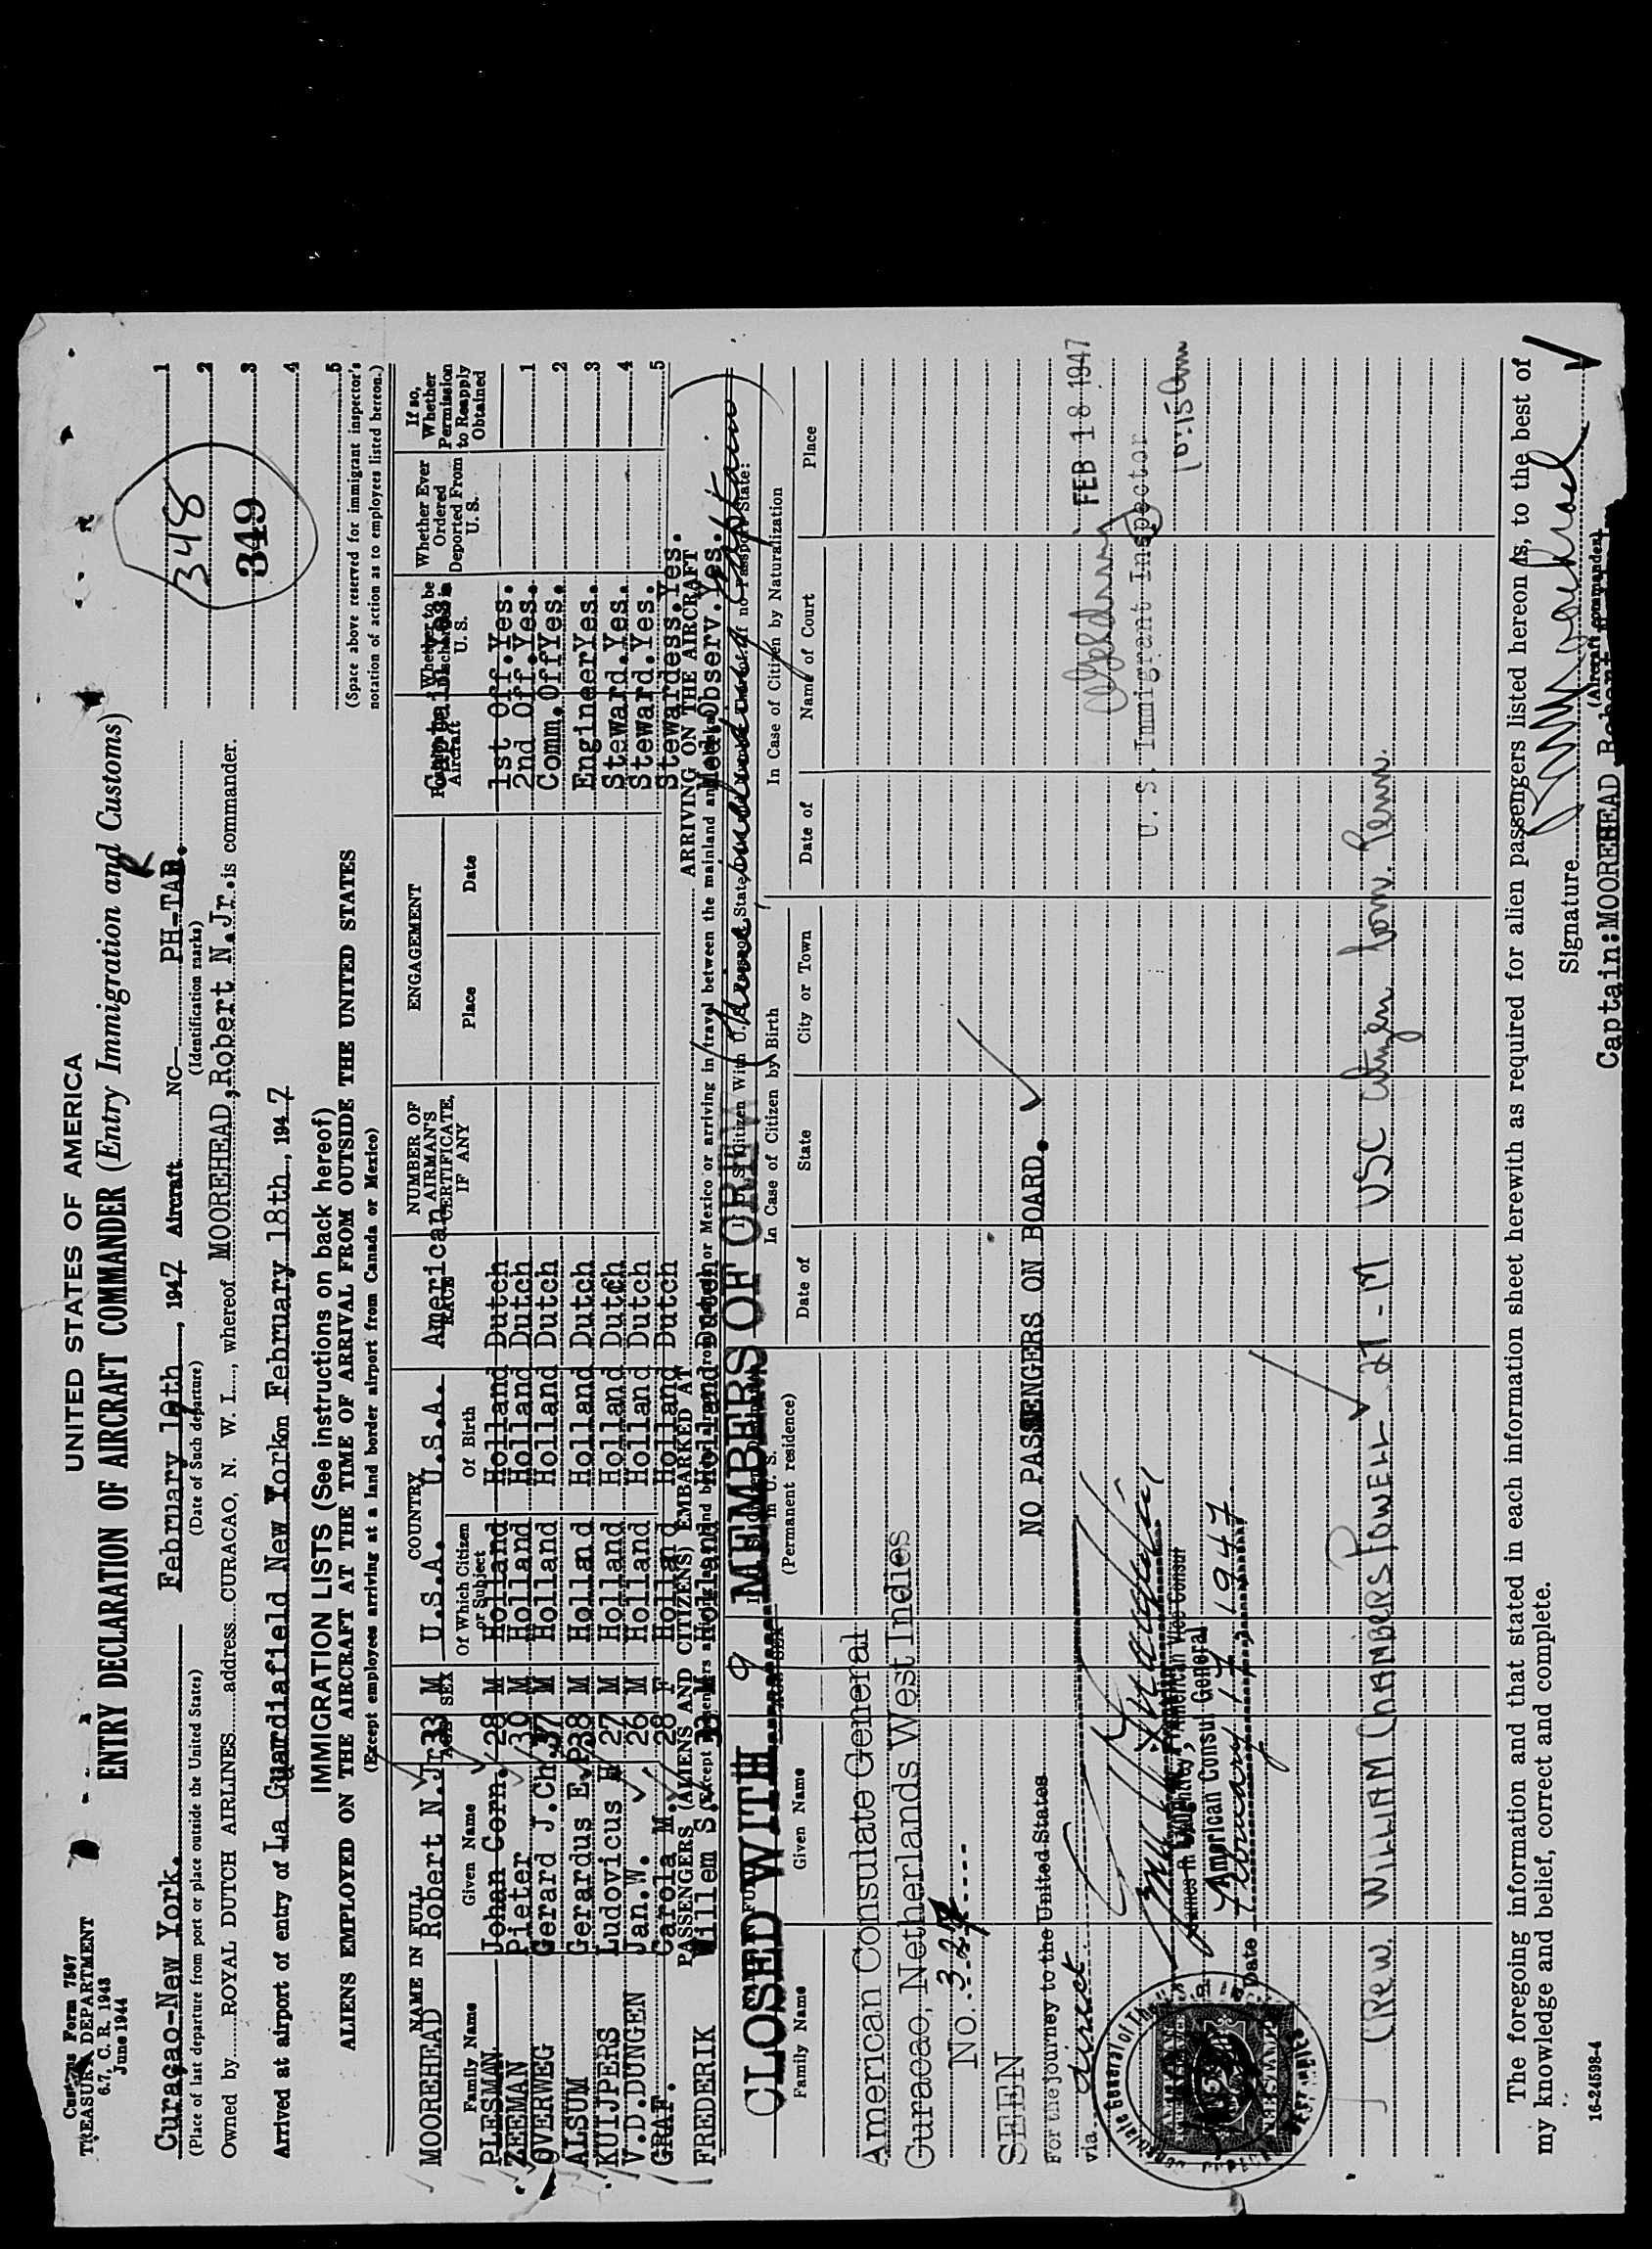 Customs Form 7507
TREASURY DEPARTMENT
6.7, C. R. 1943
June 1944
UNITED STATES OF AMERICA
ENTRY DECLARATION OF AIRCRAFT COMMANDER (Entry Immigration and Customs)
348
349
1
2
3
4
5
(Space above reserved for immigrant inspector's
notation of action as to employees listed hereon.)
Curaçao-New York. February 18th, 1947 Aircraft NC PH-TAR.
(Place of last departure from port or place outside the United States) (Date of Such departure) (Identification marks)
Owned by ROYAL DUTCH AIRLINES address CURACAO, N. W. I., whereof MOOREHEAD, Robert N.Jr. is commander.
Arrived at airport of entry of La Guardiafield New York on February 18th, 1947
IMMIGRATION LISTS (See instructions on back hereof)
ALIENS EMPLOYED ON THE AIRCRAFT AT THE TIME OF ARRIVAL FROM OUTSIDE THE UNITED STATES
(Except employees arriving at a land border airport from Canada or Mexico)
NAME IN FULL AGE SEX COUNTRY RACE NUMBER OF AIRMAN'S CERTIFICATE, IF ANY ENGAGEMENT Position Aircraft Whether to be Discharged in U. S. Whether Ever Ordered Deported From U. S. If so, Whether Permission to Reapply Obtained
Family Name Given Name Of Which Citizen or Subject Of Birth Place Date
MOOREHEAD Robert N.Jr 33 M U.S.A. U.S.A. American Captain Yes.
PLESMAN Johan Corn. 28 M Holland Holland Dutch 1st Off. Yes. 1
ZEEMAN Pieter 30 M Holland Holland Dutch 2nd Off. Yes. 2
OVERWEG Gerard J.Ch. 37 M Holland Holland Dutch Comm. Off Yes. 3
ALSUM Gerardus E.P. 38 M Holland Holland Dutch Engineer Yes. 4
KUIJPERS Ludovicus H 27 M Holland Holland Dutch Steward. Yes. 5
V.D.DUNGEN Jan.W. 26 M Holland Holland Dutch Steward. Yes.
GRAF. Carola M. 28 F Holland Holland Dutch Stewardess. Yes.
PASSENGERS (ALIENS AND CITIZENS) EMBARKED AT ARRIVING ON THE AIRCRAFT
FREDERIK Willem S. 33 M Holland Holland Dutch Med. Observ. Yes.
CLOSED WITH 9 MEMBERS OF CREW
Family Name Given Name (Permanent residence) In Case of Citizen by Birth In Case of Citizen by Naturalization
Date of State City or Town Date of Name of Court Place
American Consulate General
Curacao, Netherlands West Indies
No. 327
SEEN
NO PASSENGERS ON BOARD.
For the journey to the United States
via direct
FEB 18 1947
U. S. Immigrant Inspector
10:15 Am
American Vice Consul
American Consul General
Date February 17, 1947
CREW. WILLIAM CHAMBERS POWELL 27 - M USC Citizen born. Penn.
The foregoing information and that stated in each information sheet herewith as required for alien passengers listed hereon is, to the best of
my knowledge and belief, correct and complete.
Signature
(Aircraft commander)
Captain: MOOREHEAD Robert
16-24598-4